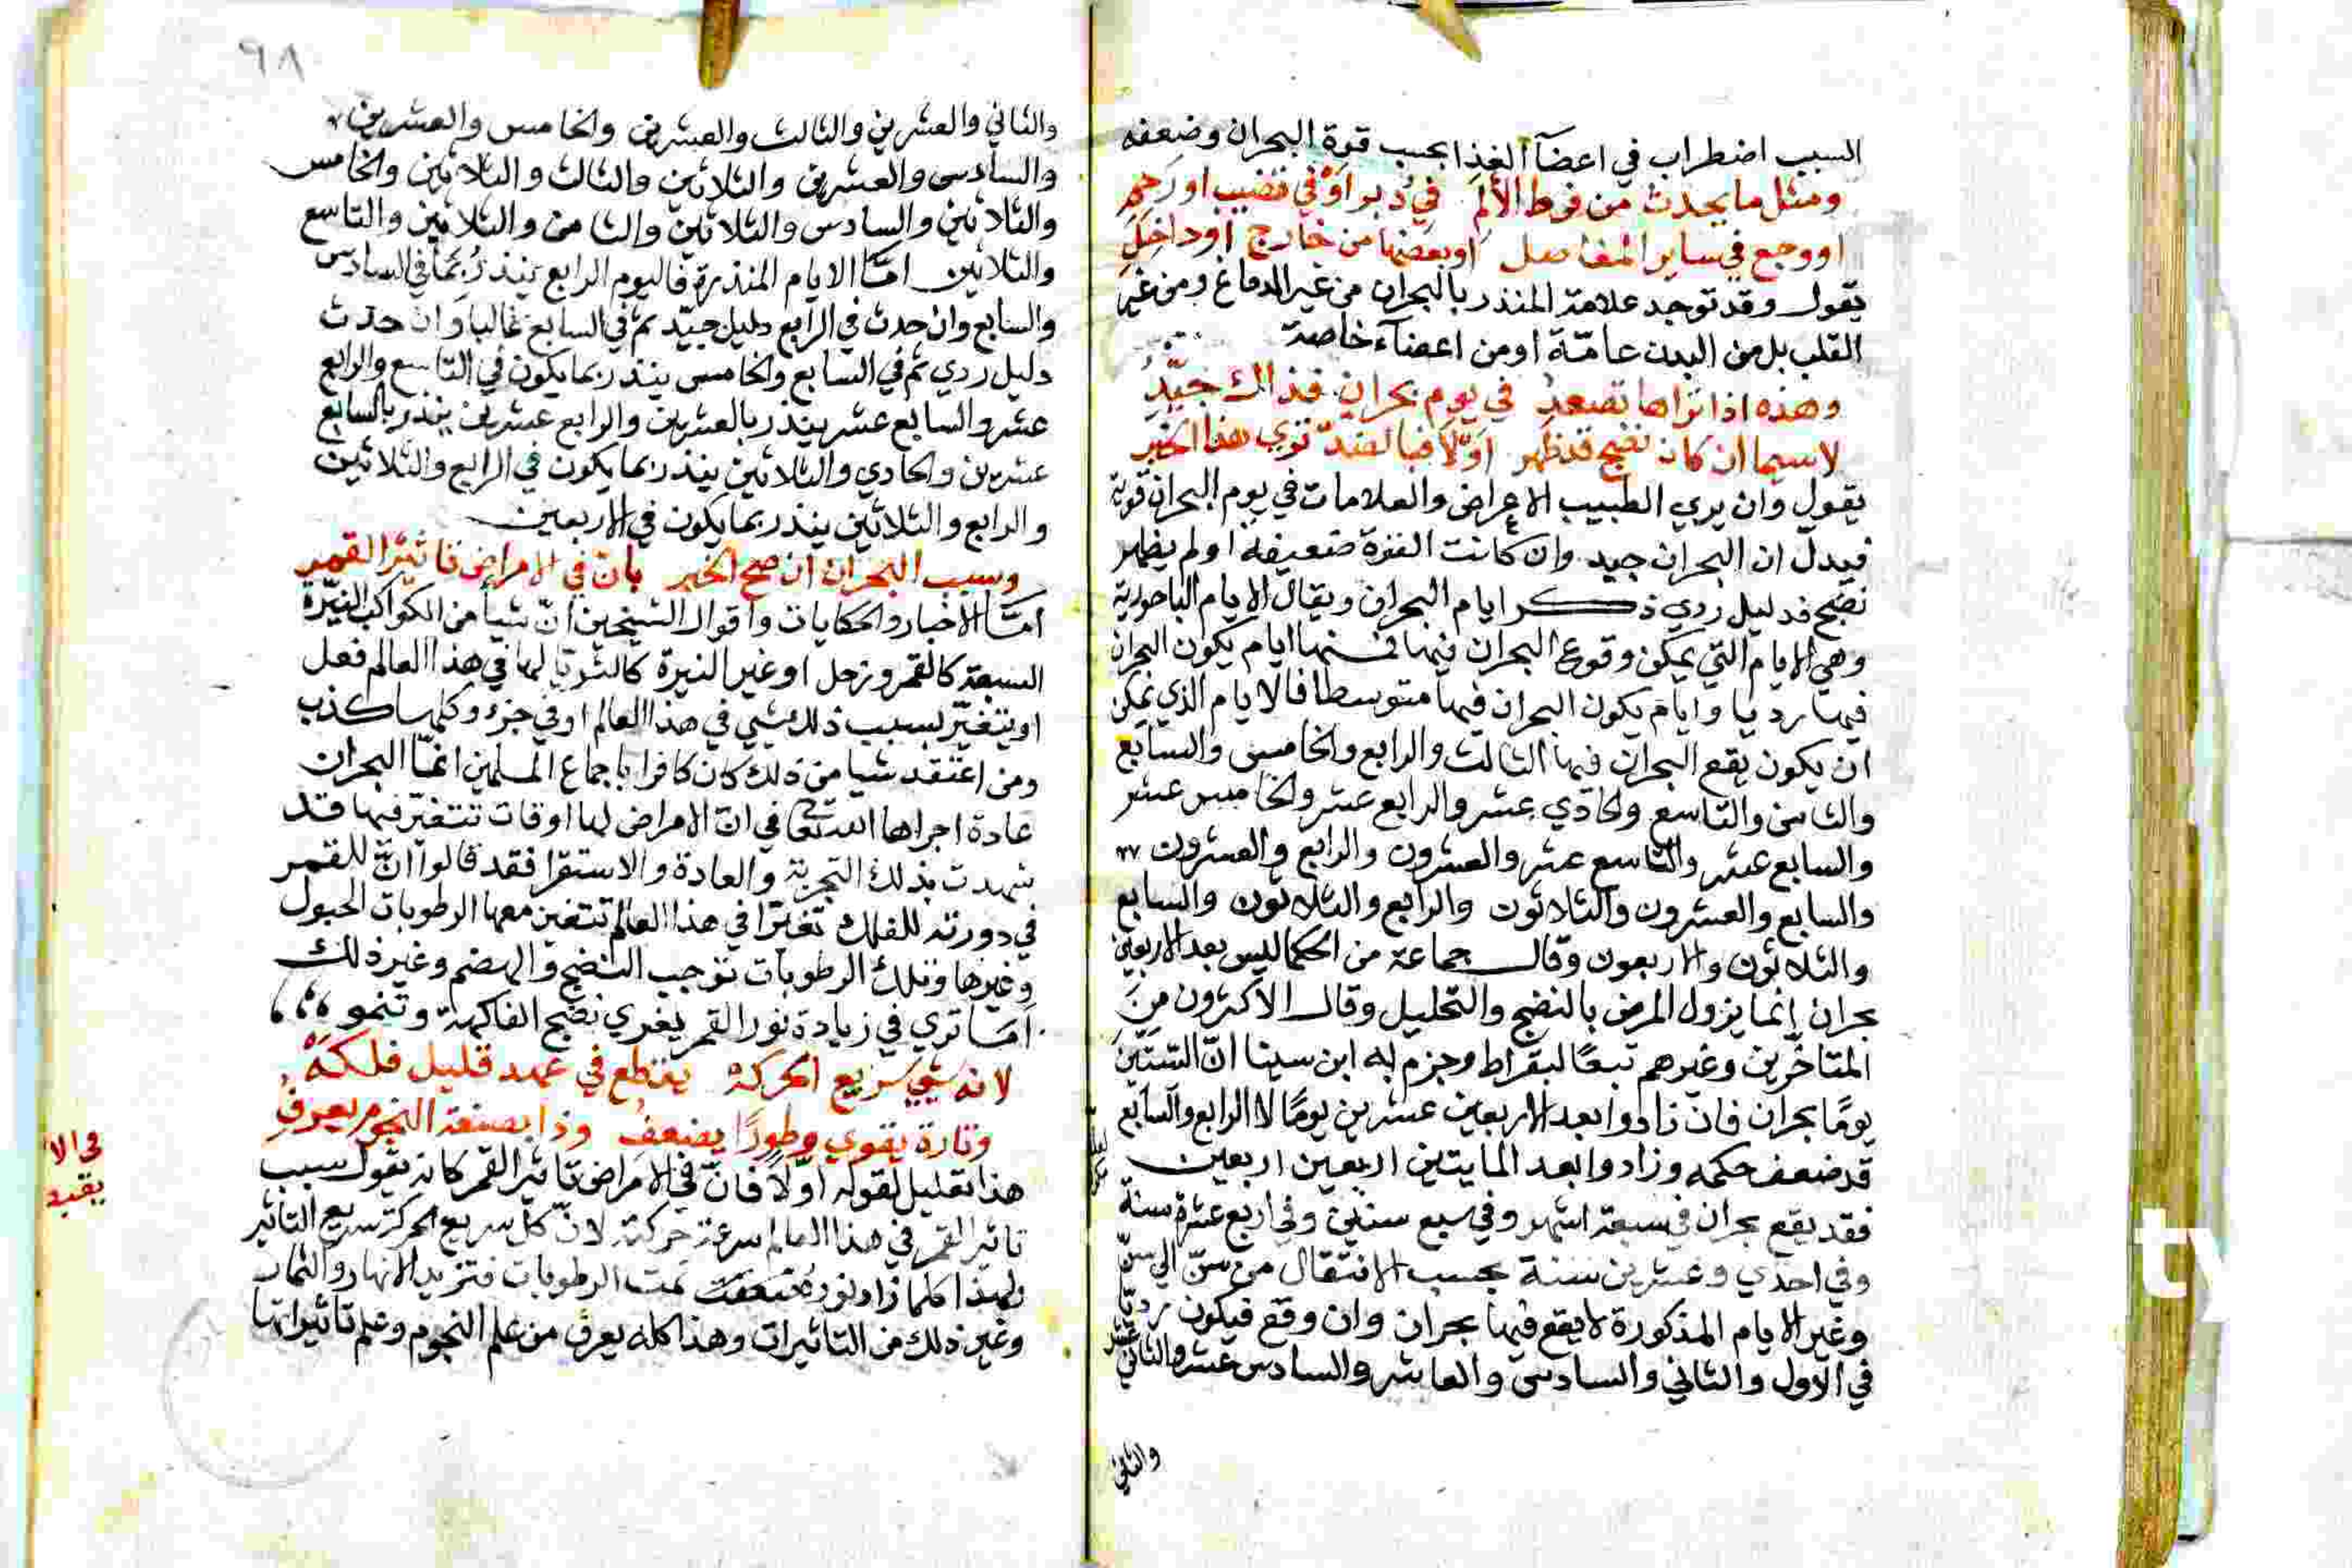 السبب اضطراب في اعضآ الغذا بحسب قوة البحران وضعفه
ومثل ما يحدث من فرط الألم في دبر او في قضيب او رحم
او وجع في ساير المفاصل او بعضها من خارج او داخل
يقول وقد توجد علامة المنذر بالبحران من غير الدماغ ومن غير
القلب بل من البدن عامّة او من اعضآء خاصة
وهذه اذا تراها تصعد في يوم بحران فذاك جيّد
لاسيما ان كان نضج قد ظهر اوّلا فبالضدّ تري هذا الخبر
يقول وان يري الطبيب الاعراض والعلامات في يوم البحران قوية
فيدلّ ان البحران جيد وان كانت القوة ضعيفة او لم يظهر
نضج فدليل ردي ذكر ايام البحران ويقال الايام الباحورية
وهي الايام التي يمكن وقوع البحران فيها فمنها ايام يكون البحران
فيها رديا وايام يكون البحران فيها متوسطا فالايام الذي يمكن
ان يكون يقع البحران فيها الثالث والرابع والخامس والسابع
والثامن والتاسع والحادي عشر والرابع عشر والخامس عشر
والسابع عشر والتاسع عشر والعشرون والرابع والعشرون
والسابع والعشرون والثلاثون والرابع والثلاثون والسابع
والثلاثون والاربعون وقال جماعة من الحكما ليس بعد الاربعين
بحران إنما يزول المرض بالنضج والتحليل وقال الاكثرون من
المتاخرين وغيرهم تبعًا لبقراط وجزم به ابن سينا انّ الستّين
يومًا بحران فان زادوا بعد الاربعين عشرين يومًا لا الرابع والسابع
قد ضعف حكمه وزادوا بعد المايتين اربعين اربعين
فقد يقع بحران في سبعة اشهر وفي سبع سنين وفي اربع عشرة سنة
وفي احدي وعشرين سنة بحسب الانتقال من سنّ الي سنّ
وغير الايام المذكورة لا يقع فيها بحران وان وقع فيكون رديّا
في الاول والثاني والسادس والعاشر والسادس عشر والثاني
والثاني
٩٨
والثاني والعشرين والثالث والعشرين والخامس والعشرين
والسادس والعشرين والثلاثين والثالث والثلاثين والخامس
والثلاثين والسادس والثلاثين والثامن والثلاثين والتاسع
والثلاثين امّا الايام المنذرة فاليوم الرابع ينذر ربما في السادس
والسابع وان حدث في الرابع دليل جيّد ثم في السابع غالبا وان حدث
دليل ردي ثم في السابع والخامس ينذر بما يكون في التاسع والرابع
عشر والسابع عشر ينذر بالعشرين والرابع عشرين ينذر بالسابع
عشرين والحادي والثلاثين ينذر بما يكون في الرابع والثلاثين
والرابع والثلاثين ينذر بما يكون في الاربعين
وسبب البحران ان صح الخبر بان في الامراض تاثير القمر
امّا الاخبار والحكايات واقوال الشيخين انّ شيا من الكواكب النيّرة
السبعة كالقمر وزحل او غير النيرة كالثريا لها في هذا العالم فعل
او يتغيّر بسبب ذلك شيي في هذا العالم او في جزء وكلها كذب
ومن اعتقد شيا من ذلك كان كافرا باجماع المسلمين انمّا البحران
عادة اجراها الله تعالى في انّ الامراض لها اوقات تتغيّر فيها قد
شهدت بذلك التجربة والعادة والاستقرا فقد قالوا انّ للقمر
في دورته للفلك تغيّرا في هذا العالم تتغير معها الرطوبات الحبول
وغيرها وتلك الرطوبات توجب النضج والهضم وغير ذلك
امَا تري في زيادة نور القمر يغري نضج الفاكهة وتنمو
لانه شيي سريع الحركة يقطع في عهد قليل فلكه
وتارة يقوي وطورًا يضعف وذا بصنعة النجوم يعرف
هذا تعليل لقوله اوّلا فانّ في الامراض تاثير القمر كانه يقول سبب
تاثير القمر في هذا العالم سرعة حركته لانّ كل سريع الحركة سريع التاثير
ولهذا كلما زاد نوره نمت الرطوبات فتزيد الانهار والثمار
وغير ذلك من التاثيرات وهذا كله يعرف من علم النجوم وعلم تاثيراتها
في الا
يقيد
ty